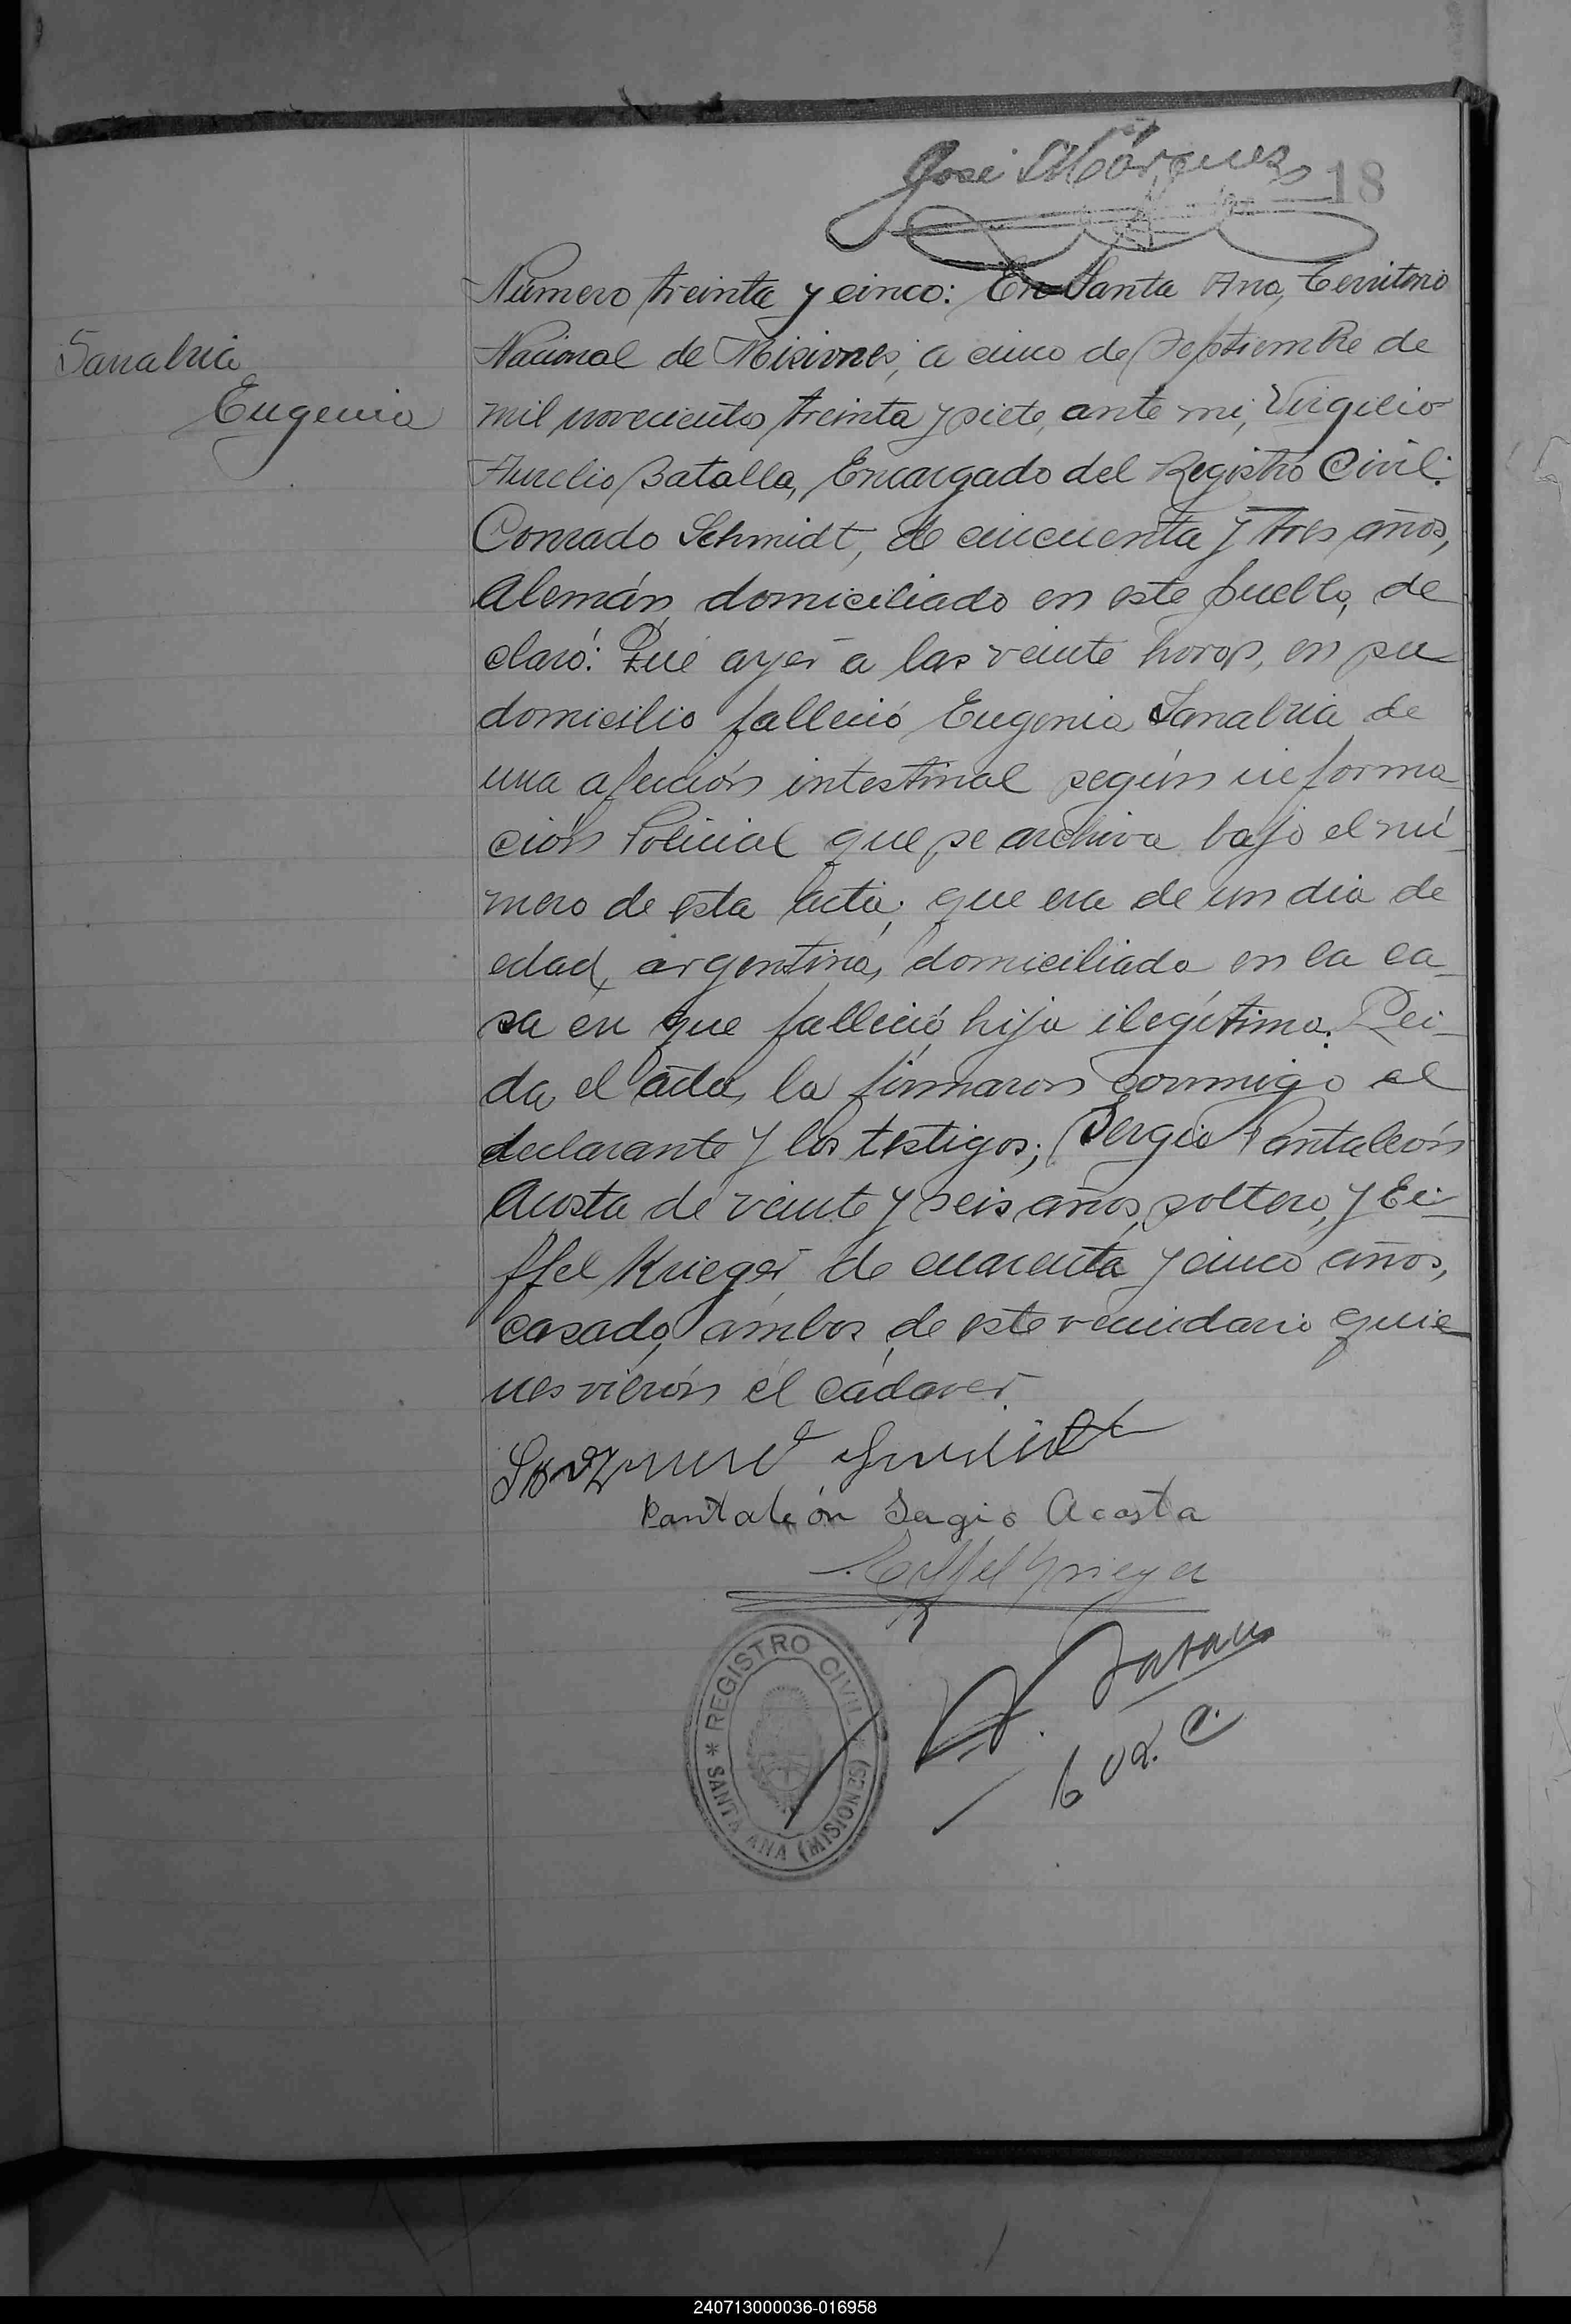 José Márquez
18
Número treinta y cinco: En Santa Ana, Territorio
Sanabria
Eugenia
Nacional de Misiones, a cinco de Septiembre de
mil novecientos treinta y siete, ante mí, Virgilio
Aurelio Batalla, Encargado del Registro Civil:
Conrado Schmidt, de cincuenta y tres años,
Alemán, domiciliado en este pueblo, de
claró: Que ayer a las veinte horas, en su
domicilio falleció Eugenia Sanabria de
una afección intestinal según informa_
ción Policial que se archiva bajo el nú_
mero de esta acta; que era de un dia de
edad, argentina, domiciliada en la ca_
sa en que falleció, hija ilegítima. Leí_
da el acta, la firmaron conmigo el
declarante y los testigos; Sergio Pantaleón
Acosta de veinte y seis años, soltero, y Ei_
ffel Krieger, de cuarenta y cinco años,
casado, ambos de este vecindario quie_
nes vierón el cádaver.
Pantaleón Sergio Acosta
Eiffel Krieger
REGISTRO CIVIL
SANTA ANA (MISIONES)
240713000036-016958